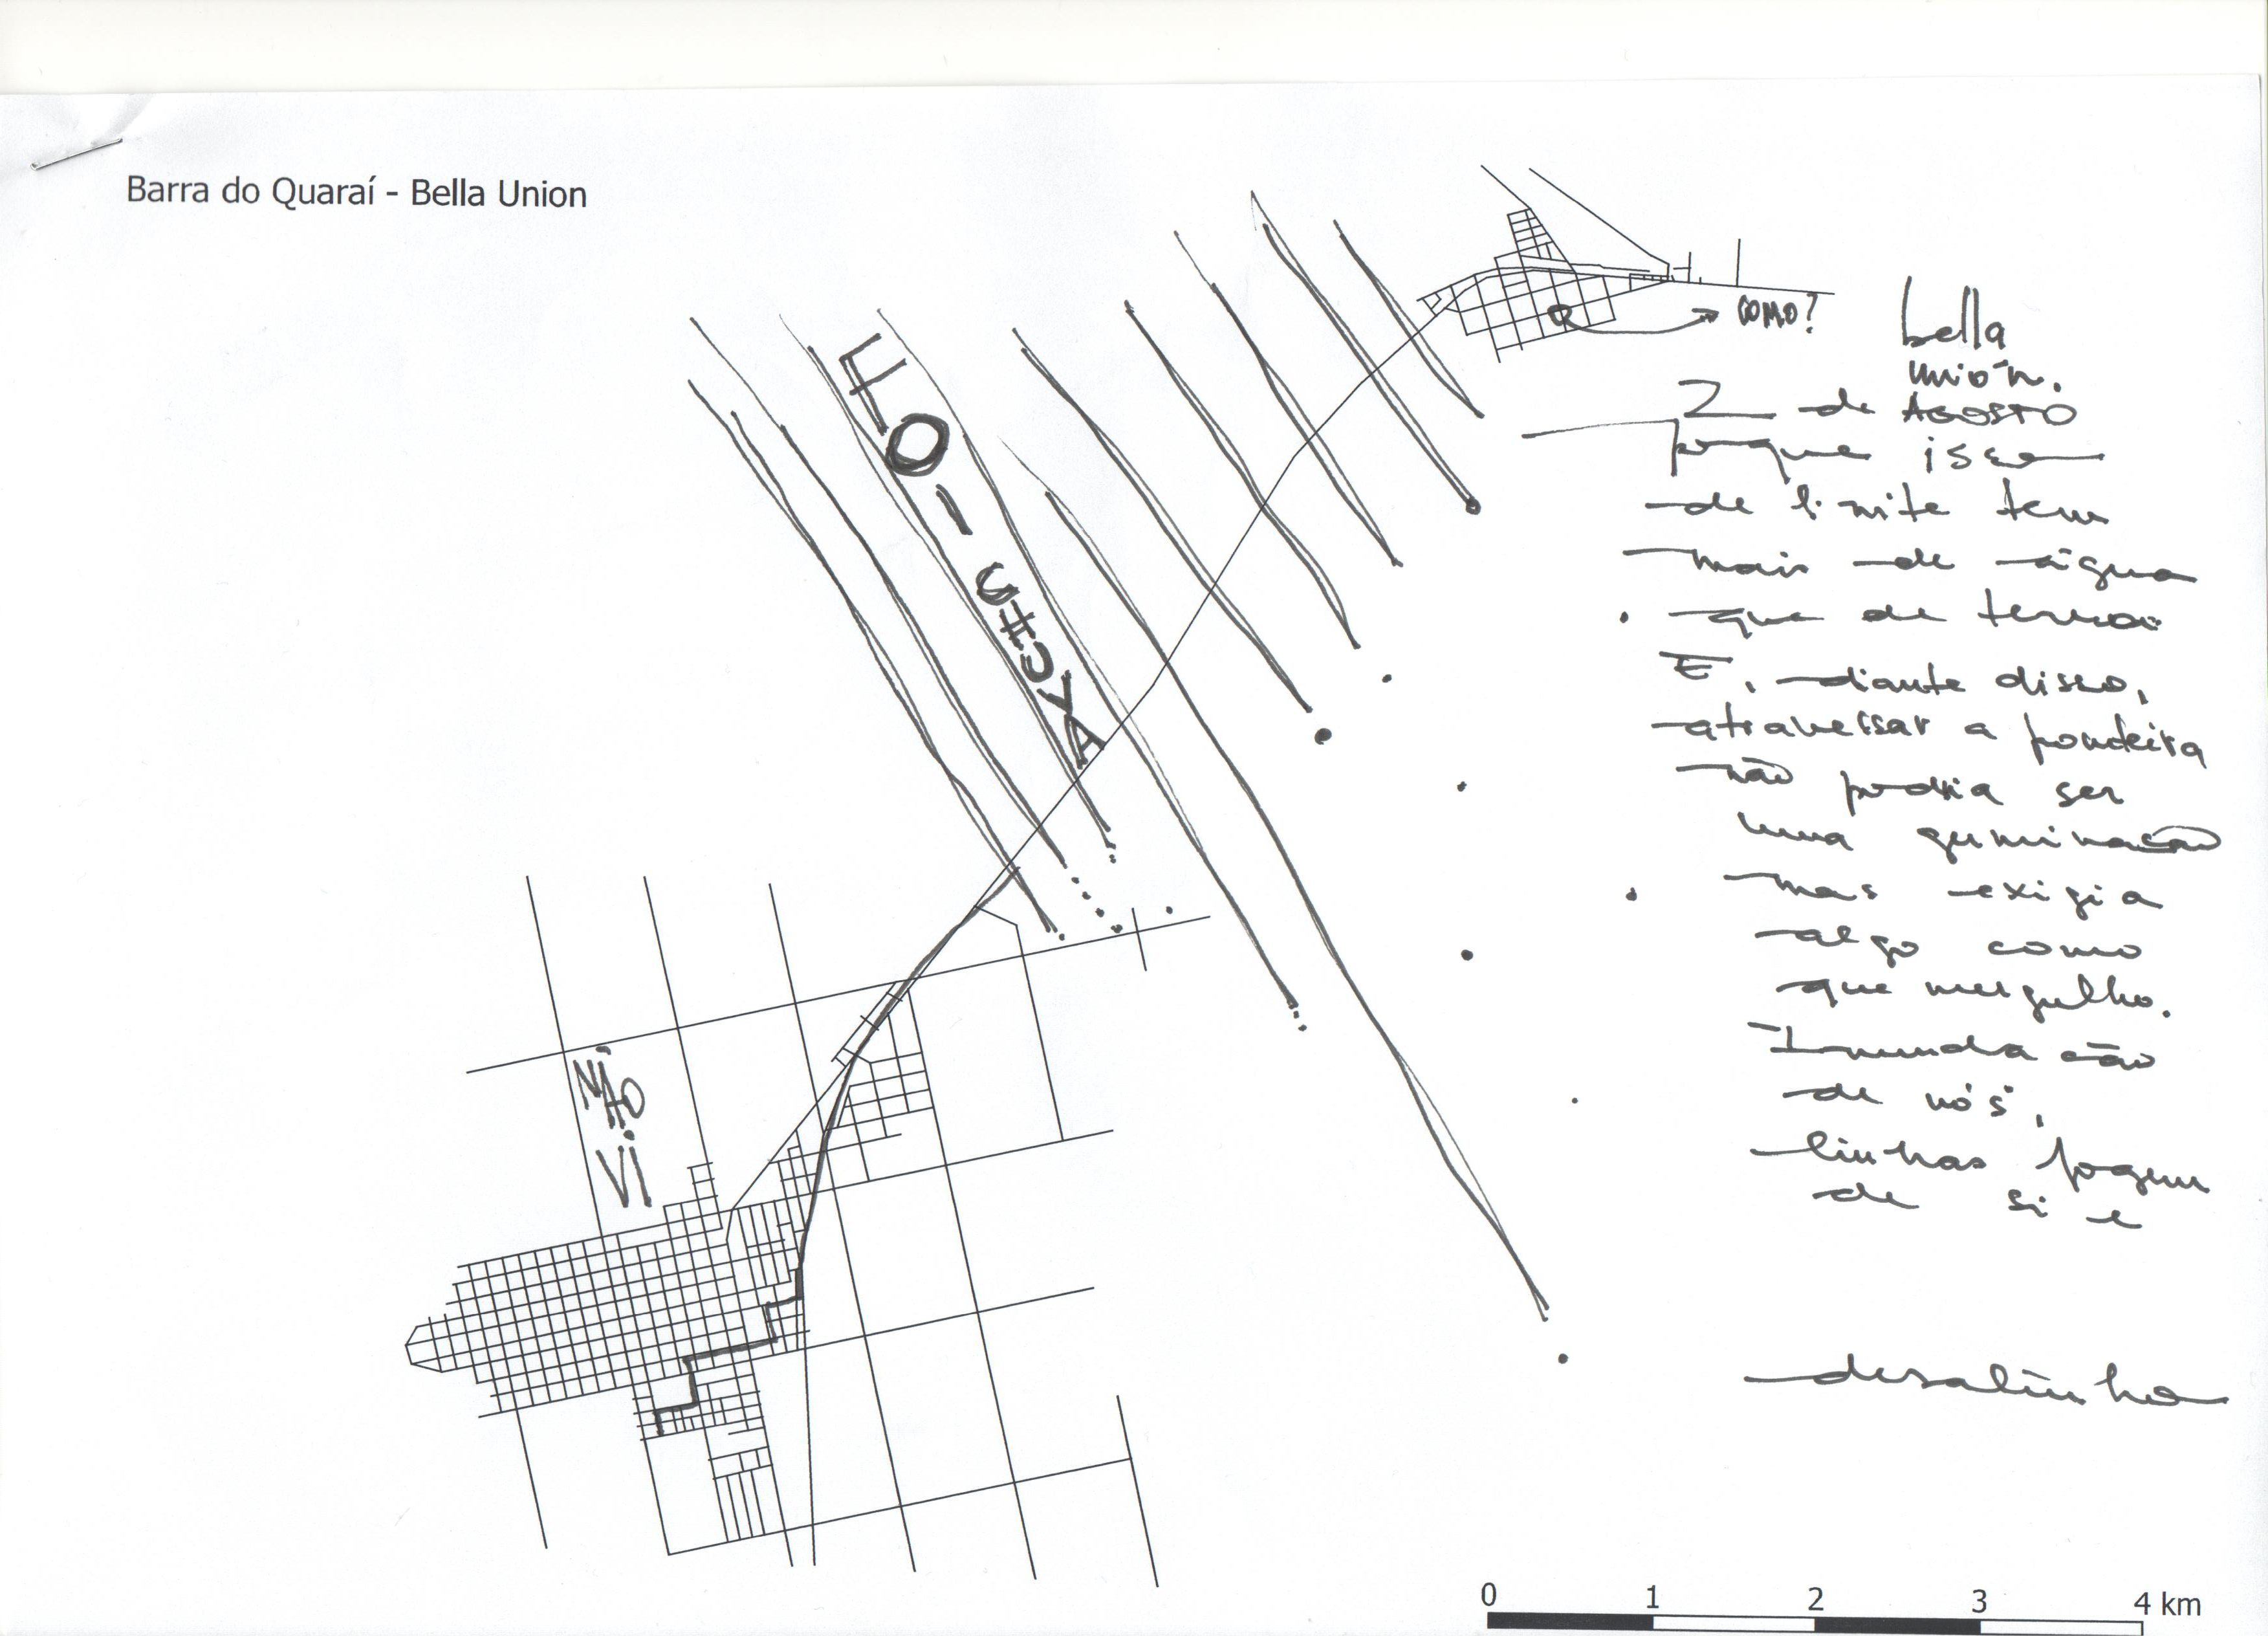 Barra do Quaraí - Bella Union
COMO?
bella
unión.
2 de AGOSTO
porque isso
de limite tem
mais de água
que de terra.
E, diante disso,
atravessar a fronteira
não podia ser
uma
mas exigia
algo como
que mergulho.
Inundação
de nós,
linhas fogem
de si e
desalinho
FOI CHUVA
NÃO
VI
0 1 2 3 4 km